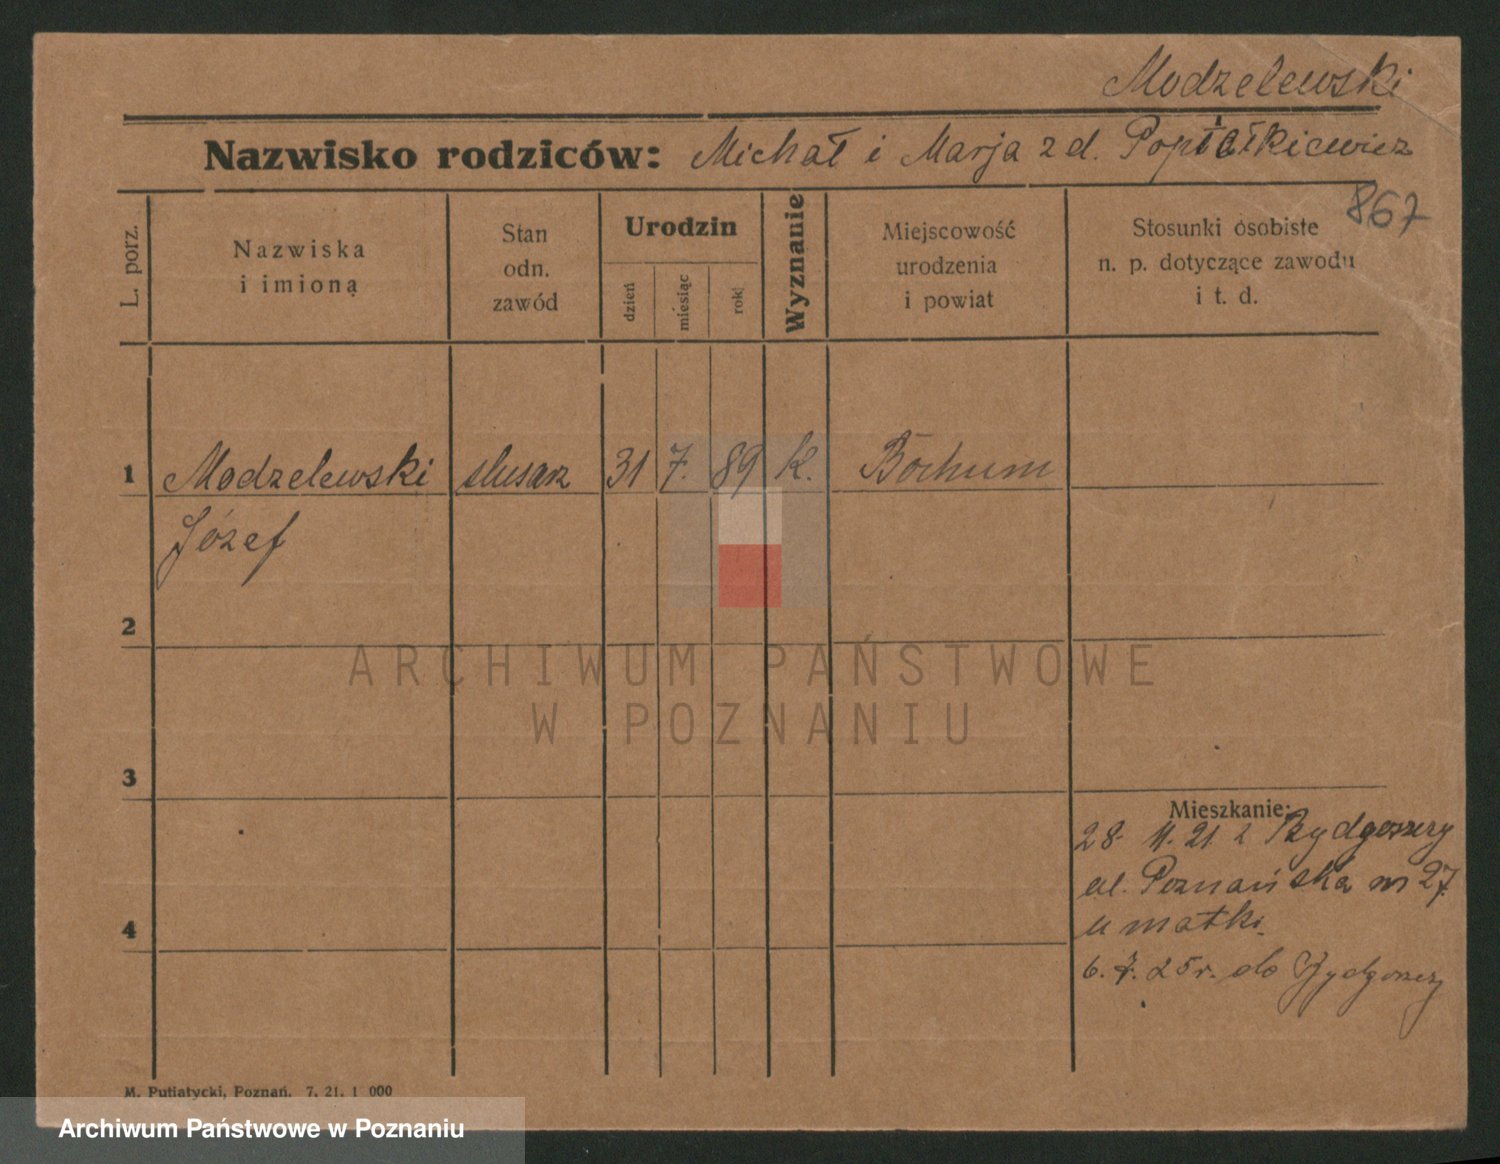 Modzelewski
Nazwisko rodziców: Michał i Marja z d. Popiałkiewicz
867
L. porz.
Nazwiska
i imiona
Stan
odn.
zawód
Urodzin
dzień
miesiąc
rok
Wyznanie
Miejscowość
urodzenia
i powiat
Stosunki osobiste
n. p. dotyczące zawodu
i t. d.
1 Modzelewski ślusarz 31 7. 89 k. Bochum
Józef
2
3
4
Mieszkanie:
28. 11. 21 z Bydgoszczy
ul. Poznańska nr 27.
u matki.
6. 7. 25 r. do Bydgoszczy
M. Putiatycki, Poznań. 7. 21. 1 000
ARCHIWUM PAŃSTWOWE
W POZNANIU
Archiwum Państwowe w Poznaniu